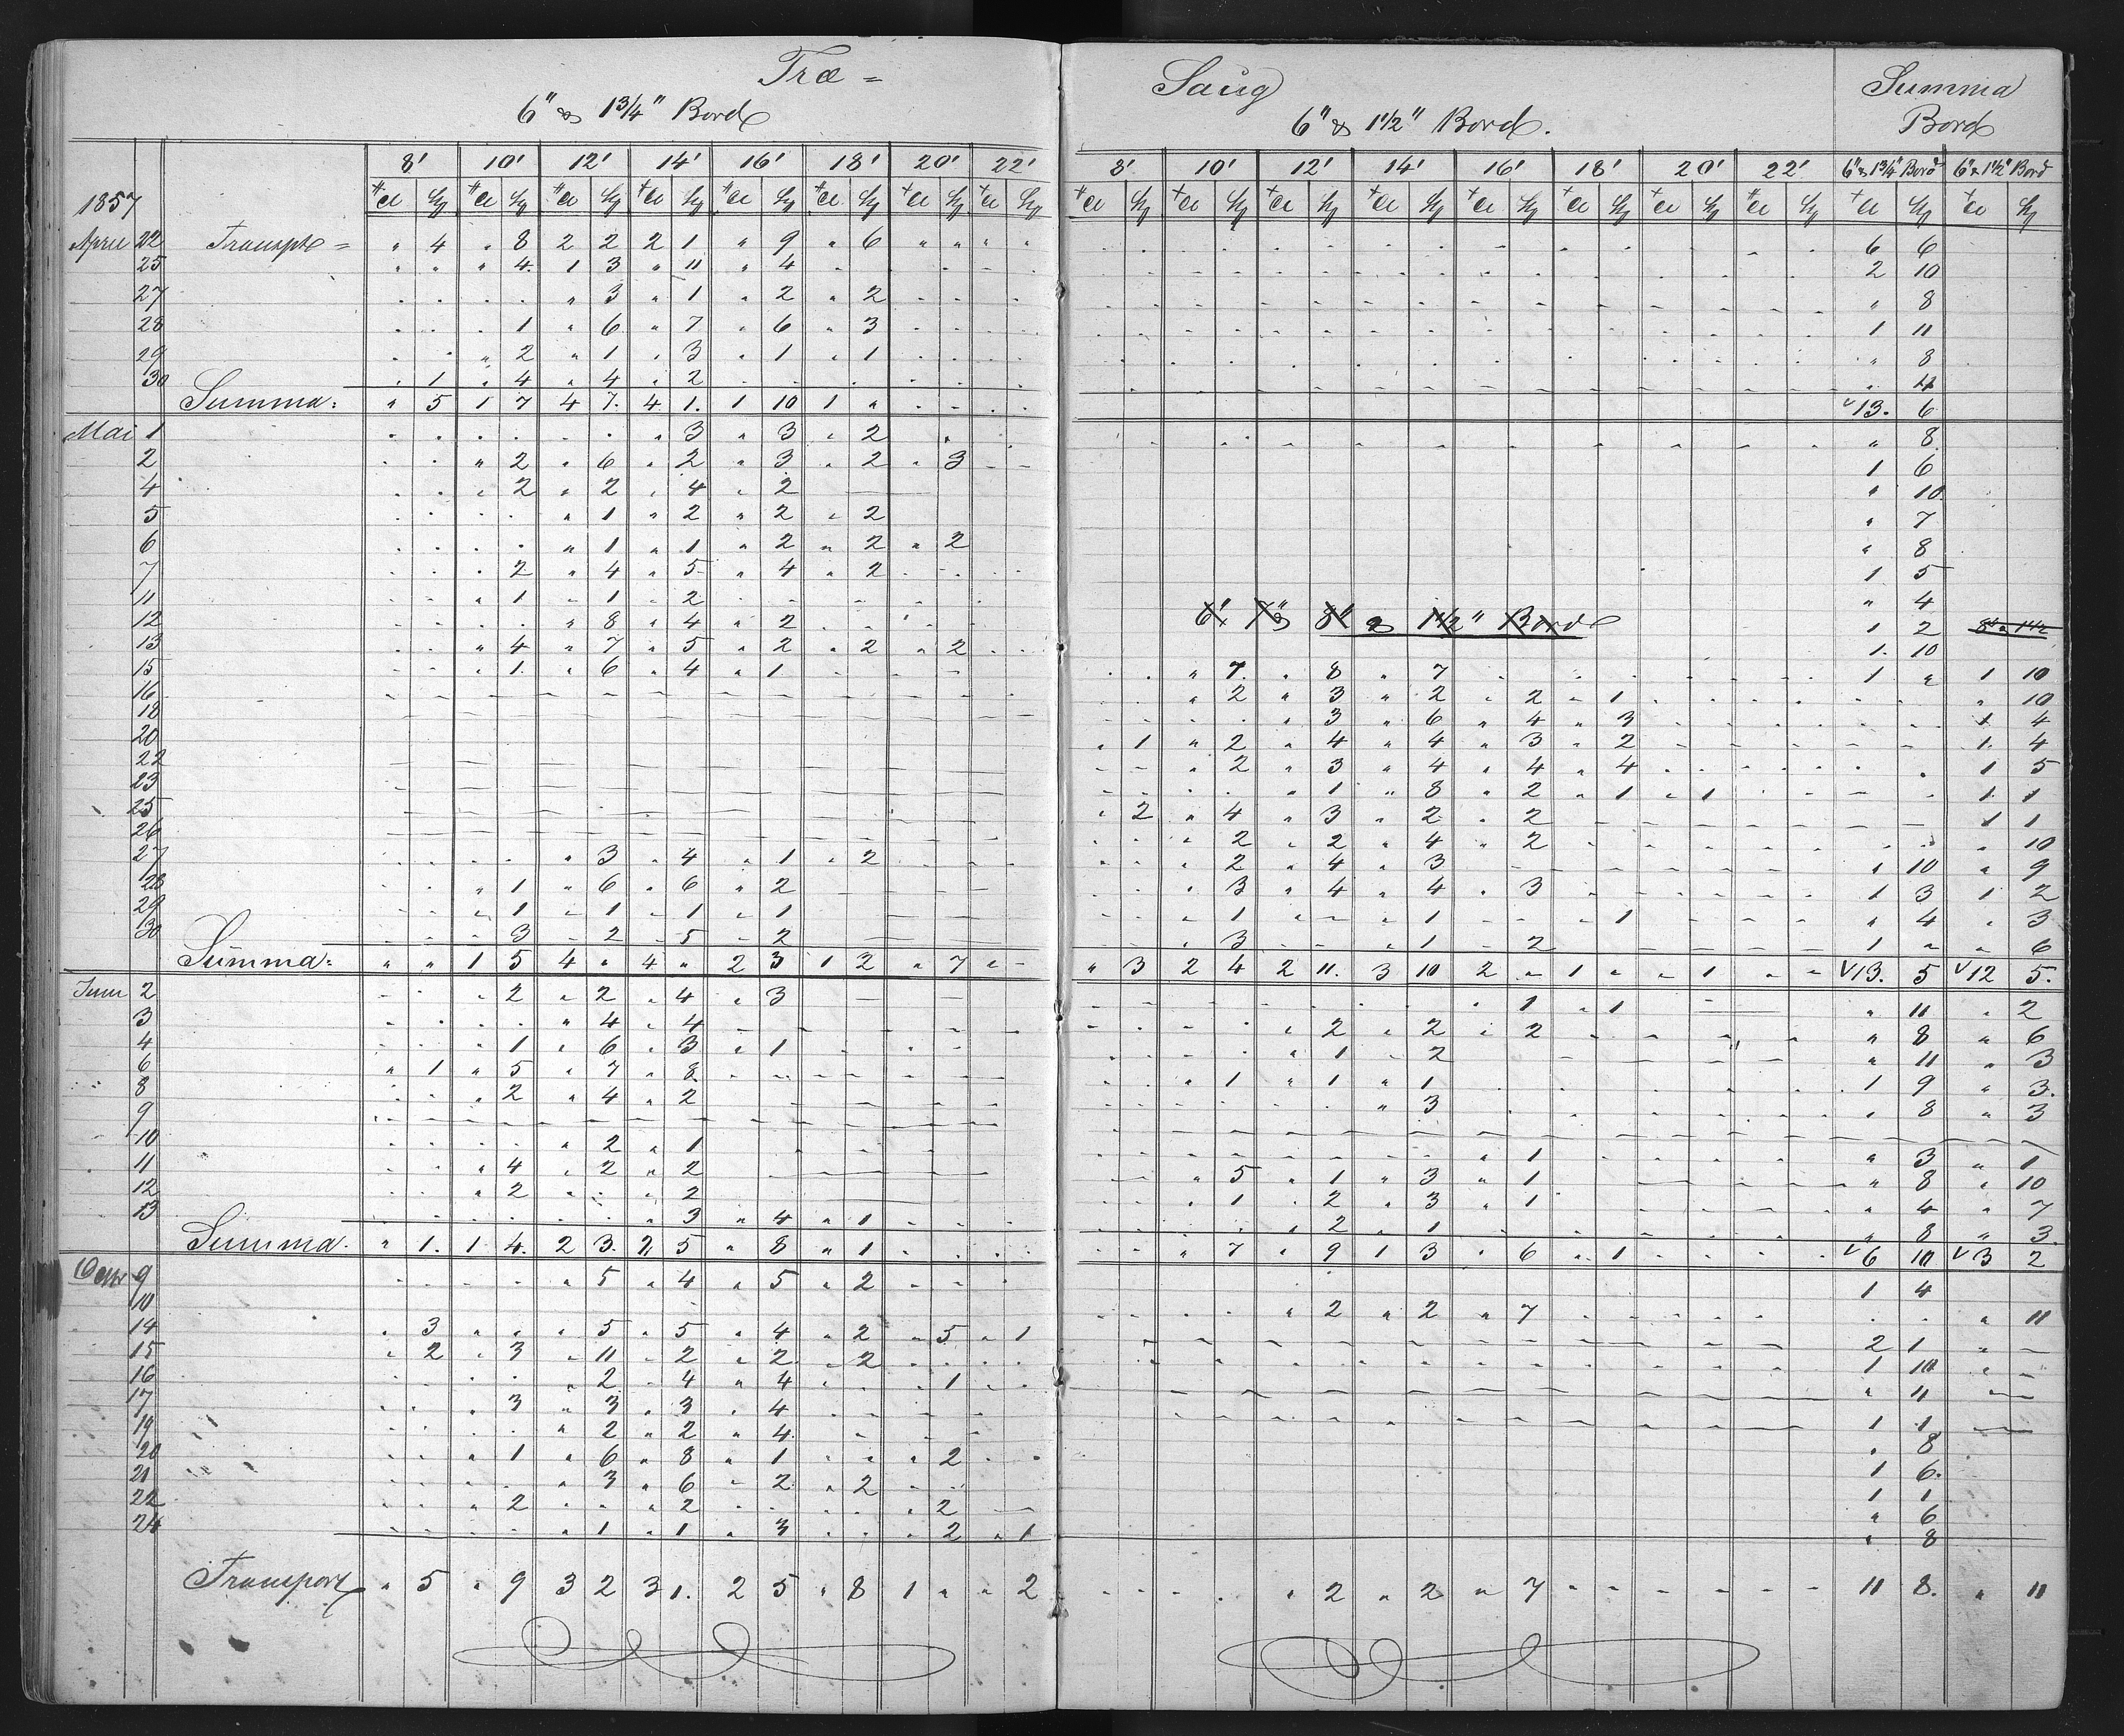 Træ = Saug Summa
6" & 1 3/4" Bord 6" & 1 1/2" Bord. Bord
8' 10' 12' 14' 16' 18' 20' 22' 8' 10' 12' 14' 16' 18' 20' 22' 6" & 1 3/4" Bord 6" & 1 1/2" Bord
1857
April 22 Transpt = " 4 " 8 2 2 2 1 " 9 " 6 " " " " 6 6
25 " " " 4 1 3 " 11 " 4 2 10
27 " 3 " 1 " 2 " 2 " 8
28 1 " 6 " 7 " 6 " 3 1 11
29 " 2 " 1 " 3 " 1 " 1 " 8
30 1 " 4 " 4 " 2 " 4
Summa: " 5 1 7 4 7 4 1 1 10 1 " 13 6
Mai 1 " 3 " 3 " 2 " 8
2 " 2 " 6 " 2 " 3 " 2 " 3 1 6
4 " 2 " 2 " 4 " 2 " 10
5 " 1 " 2 " 2 " 2 " 7
6 " 1 " 1 " 2 " 2 " 2 " 8
7 2 " 4 " 5 " 4 " 2 1 5
11 " 1 " 1 " 2 " 4
6" 7" & 8" & 1 1/2" Bord
12 " 8 " 4 " 2 1 2 8" & 1 1/2
13 " 4 " 7 " 5 " 2 " 2 " 2 1 10
15 " 1 " 6 " 4 " 1 " 7 " 8 " 7 1 " 1 10
16 " 2 " 3 " 2 " 2 " 1 " 10
18 " 3 " 6 " 4 " 3 1 4
20 " 1 " 2 " 4 " 4 " 3 " 2 1 4
22 " 2 " 3 " 4 " 4 " 4 1 5
23 " 1 " 8 " 2 " 1 " 1 1 1
25 " 2 " 4 " 3 " 2 " 2 1 1
26 " 2 " 2 " 4 " 2 " 10
27 " 3 " 4 " 1 " 2 " 2 " 4 " 3 " 10 " 9
28 " 1 " 6 " 6 " 2 " 3 " 4 " 4 " 3 1 3 1 2
29 " 1 " 1 " 1 " 1 " 1 " 1 1 " 4 " 3
30 3 2 5 2 " 3 " 1 2 1 " " 6
Summa: " " 1 5 4 " 4 " 2 3 1 2 " 7 " " 3 2 4 2 11 3 10 2 " 1 " " 1 " " 13 5 12 5
Juni 2 " 2 " 2 " 4 " 3 1 " 1 " 11 " 2
3 " 4 " 4 " 2 " 2 " 2 " 8 " 6
4 1 " 6 " 3 " 1 " 1 2 " 11 " 3
6 " 1 " 5 " 7 " 8 " 1 " 1 " 1 1 9 " 3
8 2 " 4 " 2 " 3 " 8 " 3
9
10 " 2 " 1 " 1 " 3 " 1
11 " 4 " 2 " 2 " 5 " 1 " 3 " 1 " 8 " 10
12 " 2 " 2 " 1 " 2 " 3 " 1 " 4 " 7
13 " 3 " 4 " 1 " 2 " 1 " 8 " 3
Summa. " 1 1 4 2 3 2 5 " 8 " 1 " 7 " 9 1 3 " 6 " 1 6 10 3 2
9 " 5 " 4 " 5 " 2 1 4
10 " 2 " 2 " 7 " 11
14 " 3 " " " 5 " 5 " 4 " 2 " 5 " 1 2 1
15 " 2 " 3 " 11 " 2 " 2 " 2 1 10
16 " 2 " 4 " 4 1 " 11
17 " 3 " 3 " 3 " 4 1 1
19 " 2 " 2 " 4 " 8
20 " 1 " 6 " 8 " 1 " 2 1 6
21 " 3 " 6 " 2 " 2 1 1
22 " 2 " 2 " 2 " 6
24 " 1 " 1 " 3 2 " 1 " 8
Transport " 5 " 9 3 2 3 1 2 5 " 8 1 " " 2 " 2 " 2 " 7 11 8 " 11